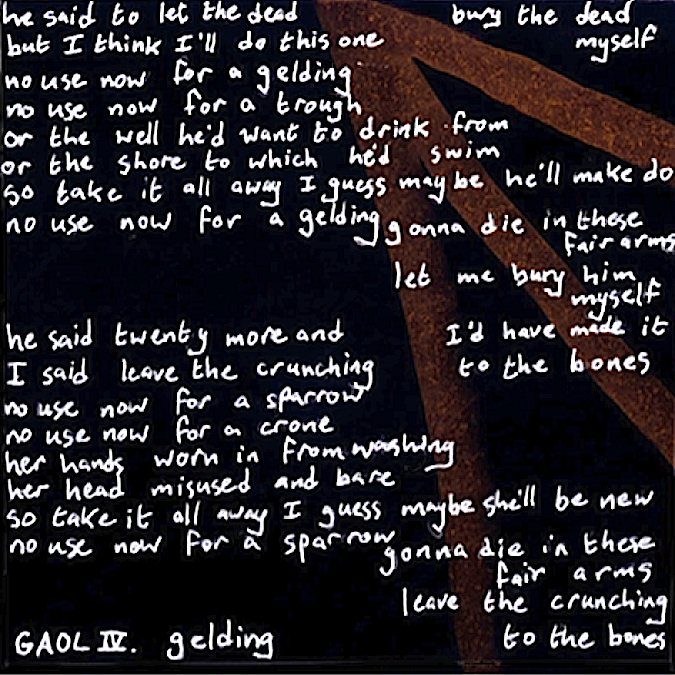 he said to let the dead bury the dead
but I think I'll do this one myself
no use now for a gelding
no use now for a trough
or the well he'd want to drink from
or the shore to which he'd swim
so take it all away I guess maybe he'll make do
no use now for a gelding gonna die in these
fair arms
let me bury him
myself
he said twenty more and I'd have made it
I said leave the crunching to the bones
no use now for a sparrow
no use now for a crone
her hands worn in from washing
her head misused and bare
so take it all away I guess maybe she'll be new
no use now for a sparrow gonna die in these
fair arms
leave the crunching
GAOL IV. gelding to the bones